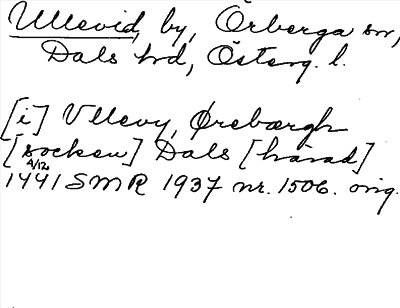 Ullevid, by, Örberga sn,
Dals hd, Österg. l.
[i] Vllevy, Ørebærgh
[socken] Dals [härad]
4/12
1441 SMR 1937 nr. 1506. orig.